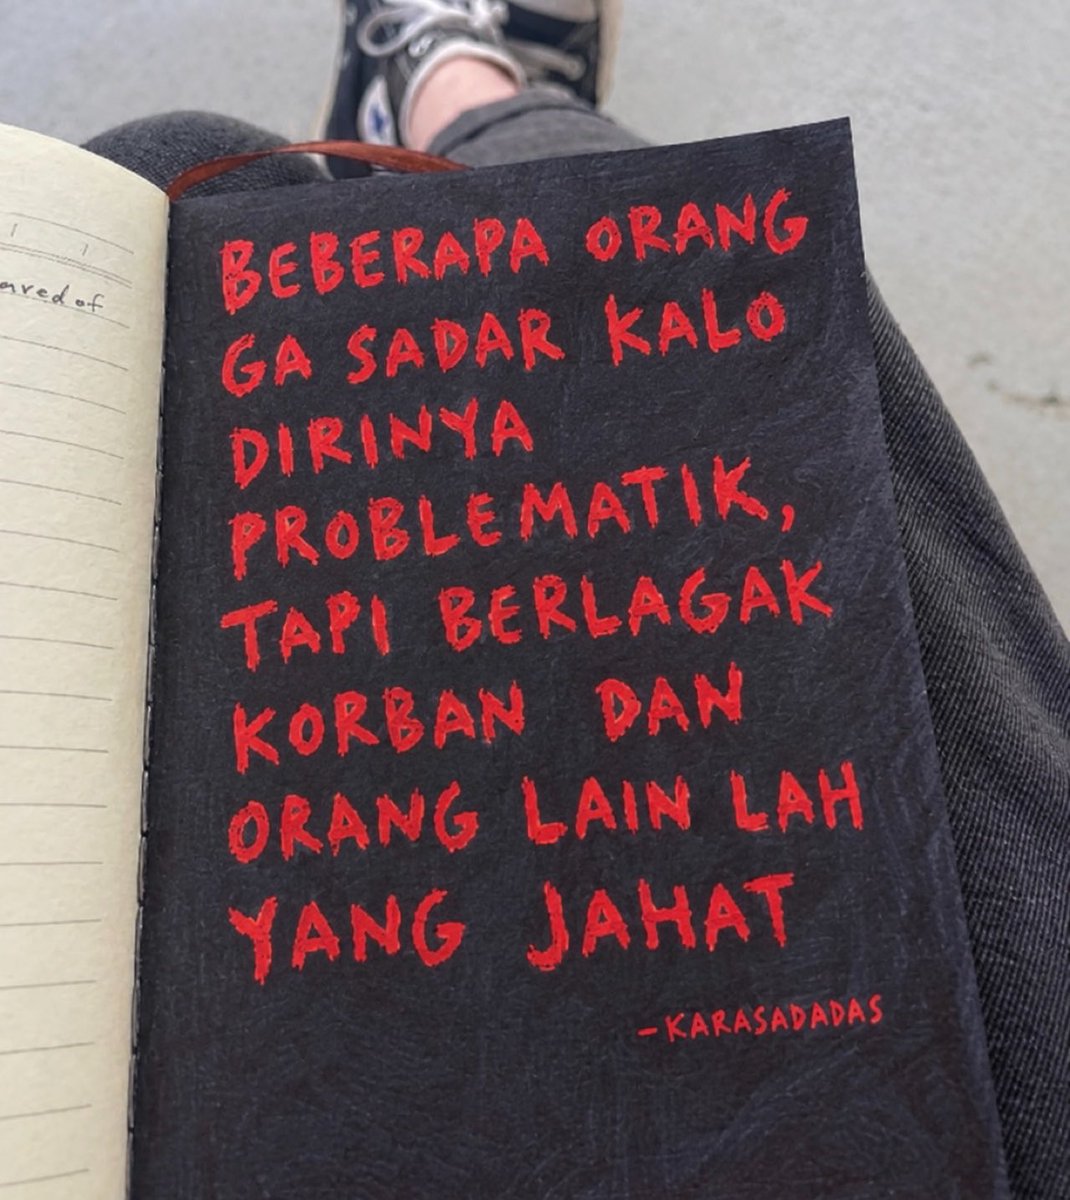 ared of
BEBERAPA ORANG
GA SADAR KALO
DIRINYA
PROBLEMATIK,
TAPI BERLAGAK
KORBAN DAN
ORANG LAIN LAH
YANG JAHAT
-KARASADADAS